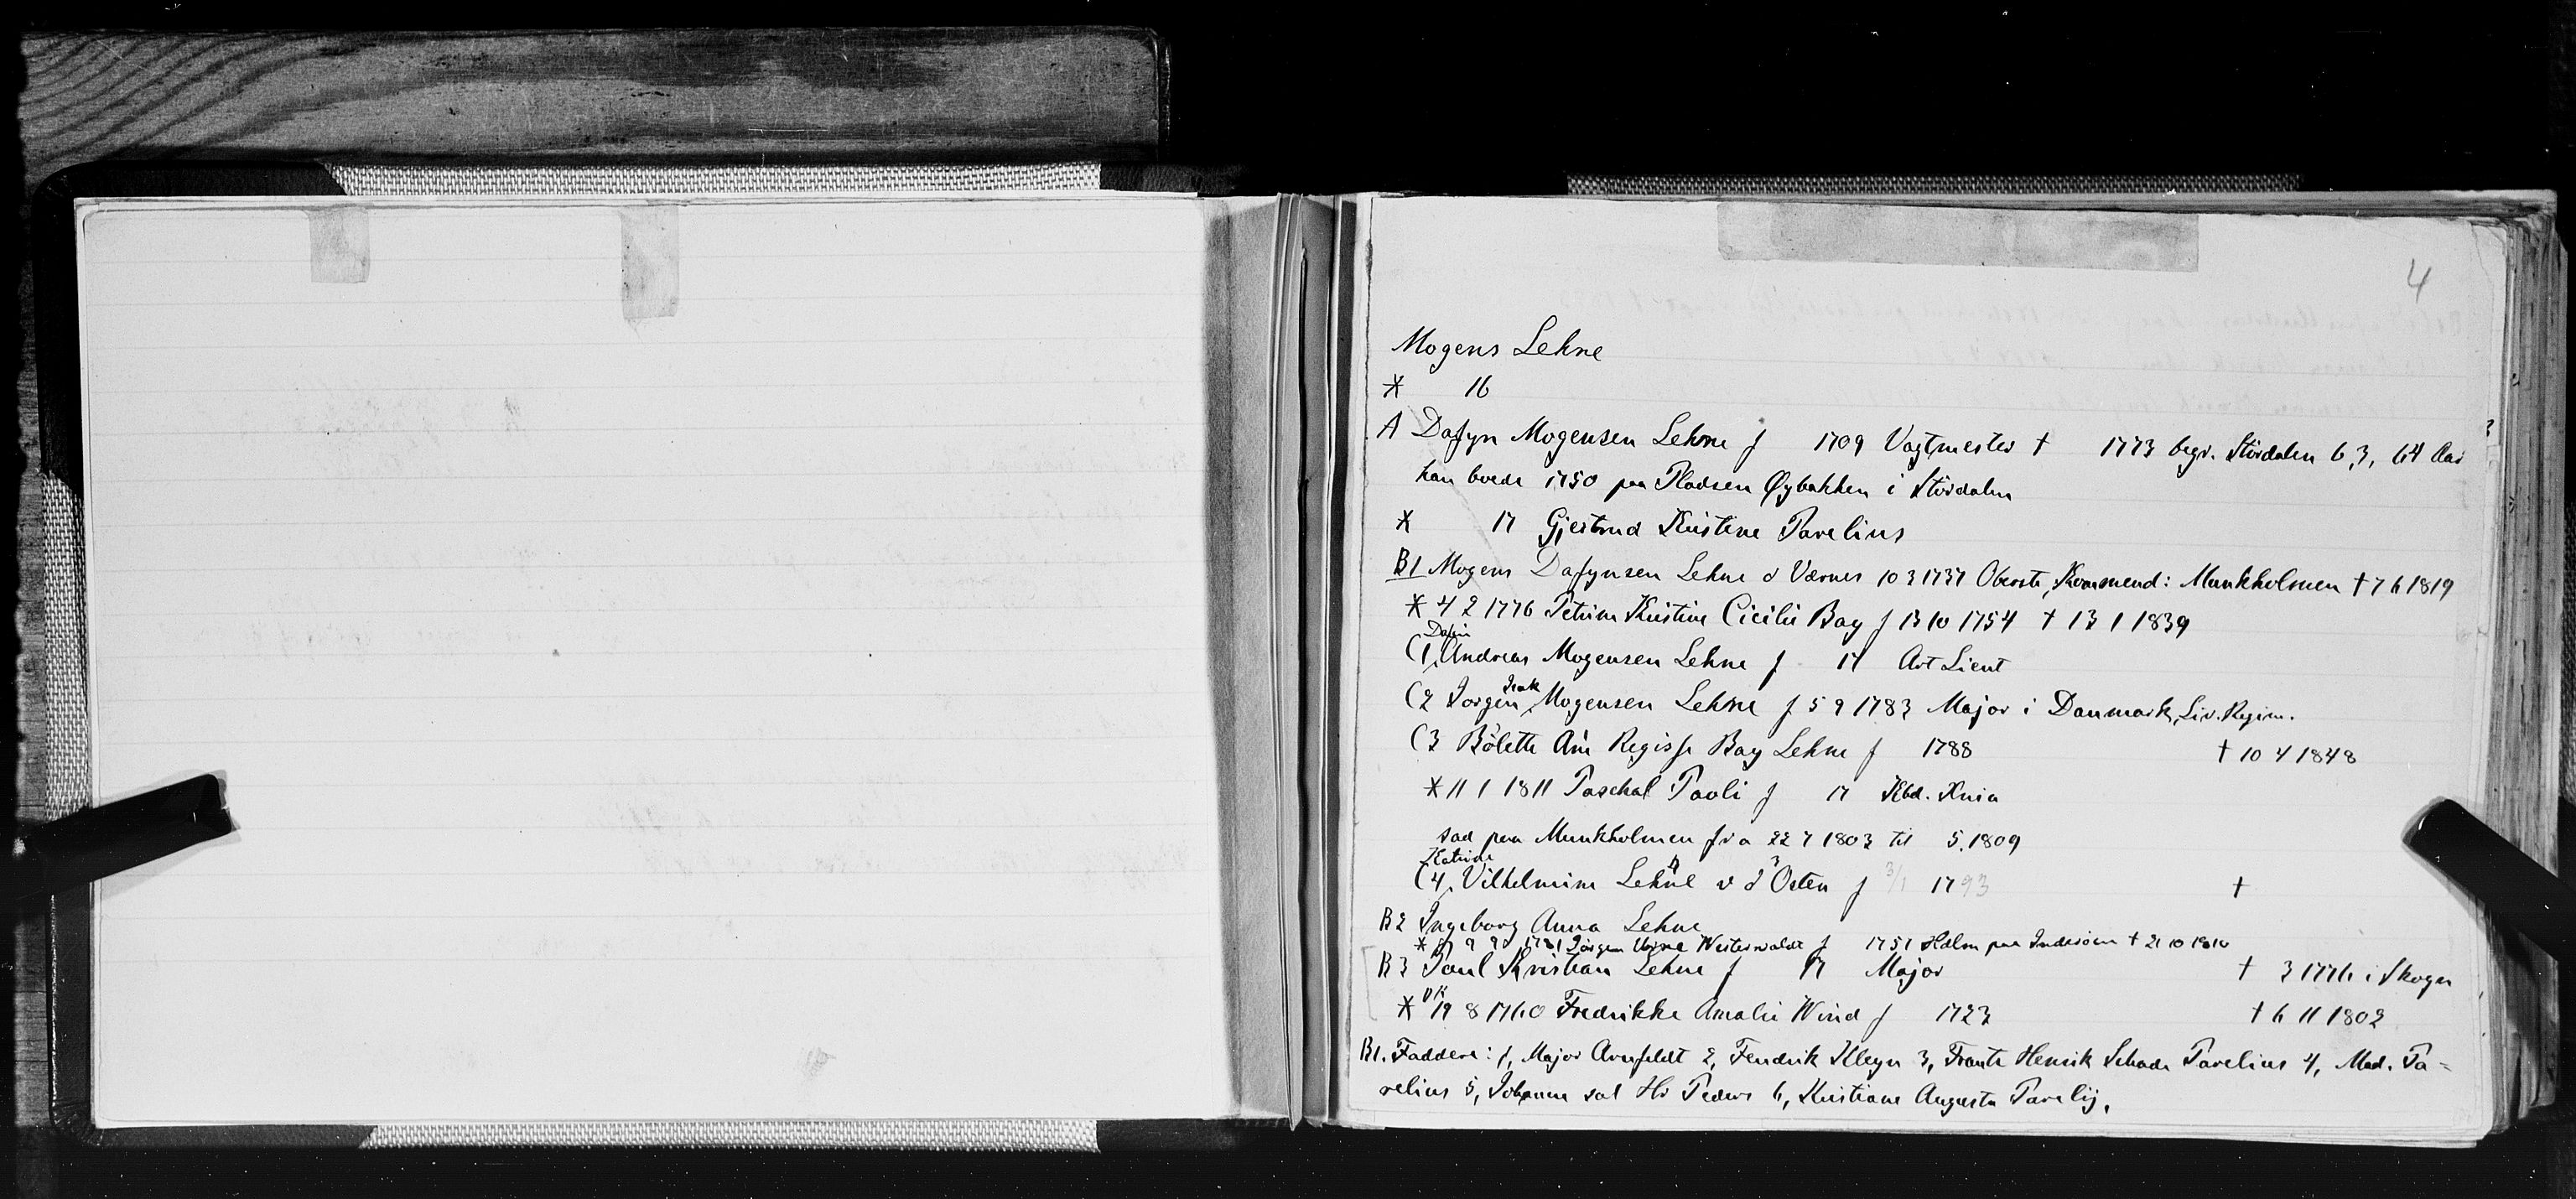 4
Mogens Lehne
* 16
A Dafyn Mogensen Lehne f 1709 Vagtmester † 1773 begr. Stördalen 6,3, 64 Aar
han boede 1750 paa Pladsen Øybakken i Stördalen
* 17 Gjertrud Kristine Parelius
B1 Mogens Dafynsen Lehne d Værnes 10 3 1737 Oberst, Kommend: Munkholmen † 7 6 1819
* 4 2 1776 Petrine Kristine Cicilie Bay f 13 10 1754 † 13 1 1839
Dafin
(1, Andreas Mogensen Lehne f 17 Art Lieut
Isak
(2 Jorgen, Mogensen Lehne f 5 9 1783 Major i Danmark, Liv. Regim.
(3 Bölette An Regisse Bay Lehne f 1788 † 10 4 1848
* 11 1 1811 Paschal Paoli f 17 Kbd. Knia
sad paa Munkholmen fra 22 7 1803 til 5. 1809
Katrine
(4, Vilhelmine Lehne v d Osten f 3/1 1793 †
B2 Ingeborg Anna Lehne
Jörgen Westerwaldt f 1751 Holm paa Inderöen † 21 10
B3 Paul Kristian Lehne f 17 Major † 3 1776 i Skogn
* 19 8 1760 Fredrikke Amalie Wind f 1723 † 6 11 1802
B1. Faddere: 1, Major Arnfeldt 2, Fendrik Kleyn 3, Frants Henrik Schade Parelius 4, Mad. Pa=
relius 5, Johanne sal Hr Peders 6, Kristiane Augusta Parelij,